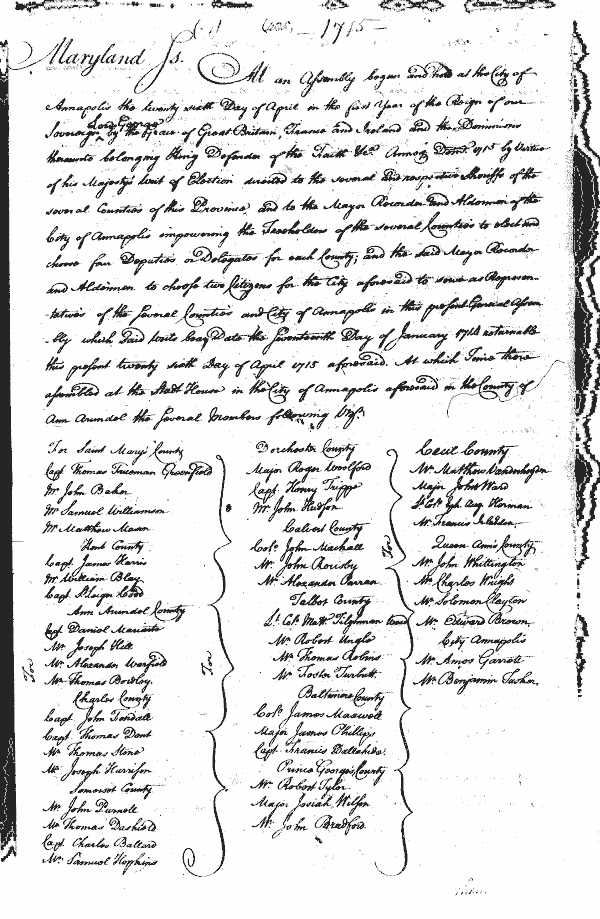 1715
Maryland Ss.
At an Assembly began and held at the City of
Annapolis the twenty sixth Day of April in the first Year of the Reign of our
Sovereign Lord George by the Grace of Great Britain, France and Ireland and the Dominions
thereunto belonging King Defender of the Faith &ca. Annoq Domi 1715 by Virtue
of his Majestys Writ of Election directed to the several and respective Sheriffs of the
several Counties of this Province, and to the Mayor Recorder and Aldermen of the
City of Annapolis impowering the Freeholders of the several Counties to elect and
choose four Deputies or Delegates for each County; and the said Mayor Recorder
and Aldermen to choose two Citizens for the City aforesaid to serve as Represen-
-tatives of the several Counties and City of Annapolis in this present General Assem
bly which said Writs bear Date the Seventeenth Day of January 1714 returnable
this present twenty sixth Day of April 1715 aforesaid. At which Time there
assembled at the Stadt House in the City of Annapolis aforesaid in the County of
Ann Arundel the several Members following Vizt.
For Saint Marys County
Capt Thomas Trueman Greenfield
Mr John Baker
Mr Samuel Williamson
Mr Matthew Mason
Kent County
Capt James Harris
Mr William Blay
Capt St Leger Codd
Ann Arundel County
Capt Daniel Mariarte
Mr Joseph Hill
Mr Alexander Warfield
Mr Thomas Bordley
Charles County
Capt John Fendall
Capt Thomas Dent
Mr Thomas Stone
Mr Joseph Harrison
Somerset County
Mr John Purnell
Mr Thomas Dashield
Capt Charles Ballard
Mr Samuel Hopkins
For
For
Dorchester County
Major Roger Woolford
Capt Henry Trippe
Mr John Hudson
Calvert County
Colo John Mackall
Mr John Rousby
Mr Alexander Parran
Talbot County
Lt Col Matt Tilghman Ward
Mr Robert Ungle
Mr Thomas Robins
Mr Foster Turbutt
Baltimore County
Colo James Maxwell
Major James Phillips
Capt Francis Dallahide
Prince Georges County
Mr Robert Tyler
Major Josiah Wilson
Mr John Bradford
For
Cecil County
Mr Matthew Vanderheyden
Major John Ward
Lt Col Eph. Aug. Herman
Mr Francis
Queen Anns County
Mr John Whittington
Mr Charles Wright
Mr Solomon Clayton
Mr Edward Brown
City Annapolis
Mr Amos Garrett
Mr Benjamin Tasker